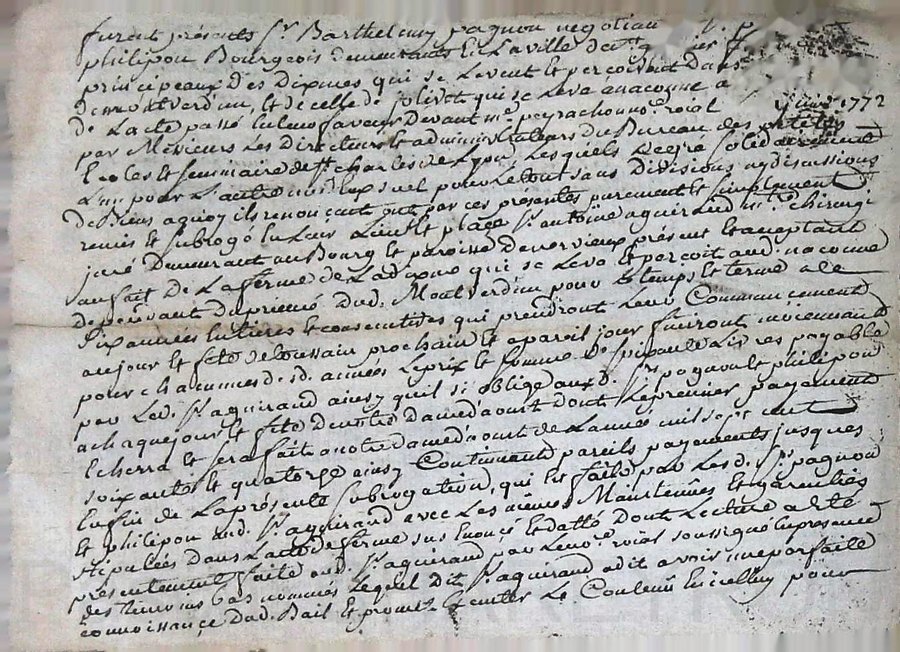 furent présents Sr. Barthelemy pagnon negotian
philipon Bourgeois demeurants En Laville de
principeaux des dixmes qui se Levent et perçoivent dans
demontverdun, et de celle de jolivet qui se Leva anaconne a
de Lacte passé En Leur faveur devant me. peyrachon no.re roial juin 1772
par Messieurs Les Directeurs et administrateurs du Bureau des petites
Ecoles et seminaire de St. charles de Lyon, Lesquels de gré solidairement
L'un pour L'autre un seul pour Le tout sans Divisions ny discussions
de Biens aquoy ils renonçant ont par ces présentes purement et simplement
remis et subrogé En Leur Lieu et place Sr. antoine aguiraud mtre. chirurgi
juré demeurant au Bourg et paroisse denervieux présent et acceptant
au fait de La ferme de Ladixme qui se Leve et perçoit aud. naconne
dependant du prieuré dud. Montverdun pour Letemps et terme de
Six années Entieres et consecutives qui prendront Leur Commancement
aujour et fête detoussain prochain et apareil jour finiront moiennant
pour chacunnes desd. années Leprix et somme de soixante Livres payable
par Led. Sr. aguiraud ainsy quil s'oblige auxd. Srs. pagnon et philipon
achaque jour et fête denotre dame d'aoust dont Le premier payement
Echerra et sera fait anotre dame d'aoust de L'année mil sept cent
soixante et quatorze ainsy Continuant pareils payements jusques
Enfin de Laprésente subrogation, qui Est faite par Lesd. Srs. pagnon
et philipon aud. Sr. aguiraud avec Les mêmes Maintenües et garenties
stipulées dans Lacte de ferme sus Enoncé et datté dont Lecture a été
présentement faite aud. Sr. aguiraud par Leno.re roial soussigné Enpresence
des temoins bas nommés Lequel dit Sr. aguiraud adit avoir une parfaite
connoissance dud. Bail et promet Executer Le Contenu En icelluy pour